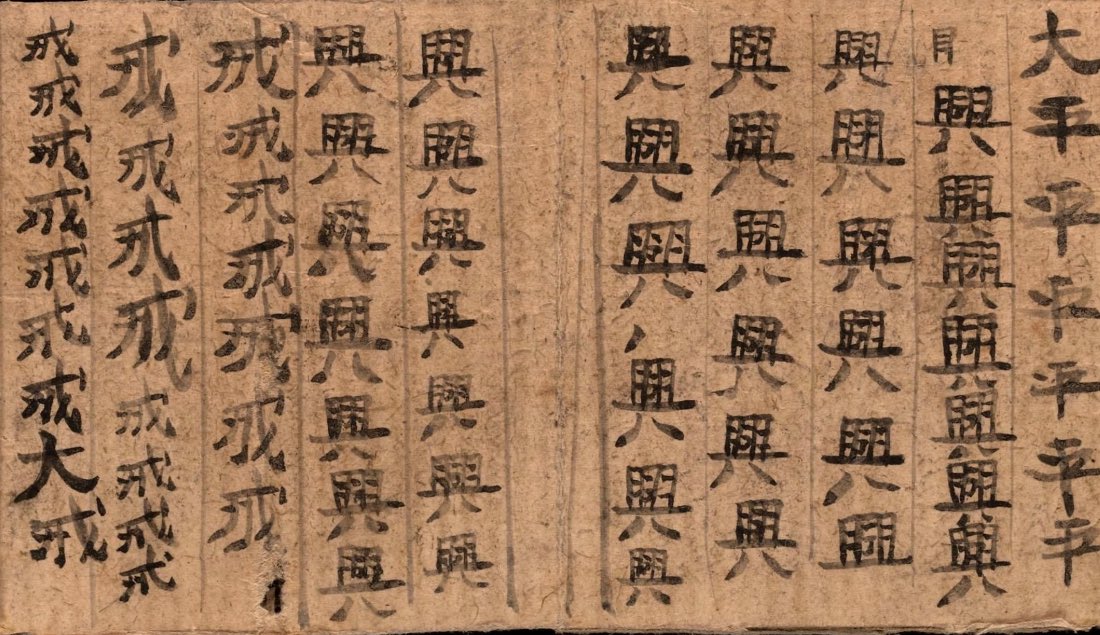 大平平平平平平
月興興興興興興興
興興興興興興
興興興興興興
興興興興興興
興興興興興興興
興興興興興興興
戒戒戒戒戒戒戒
戒戒戒戒戒戒戒戒
戒戒戒戒戒戒戒大戒